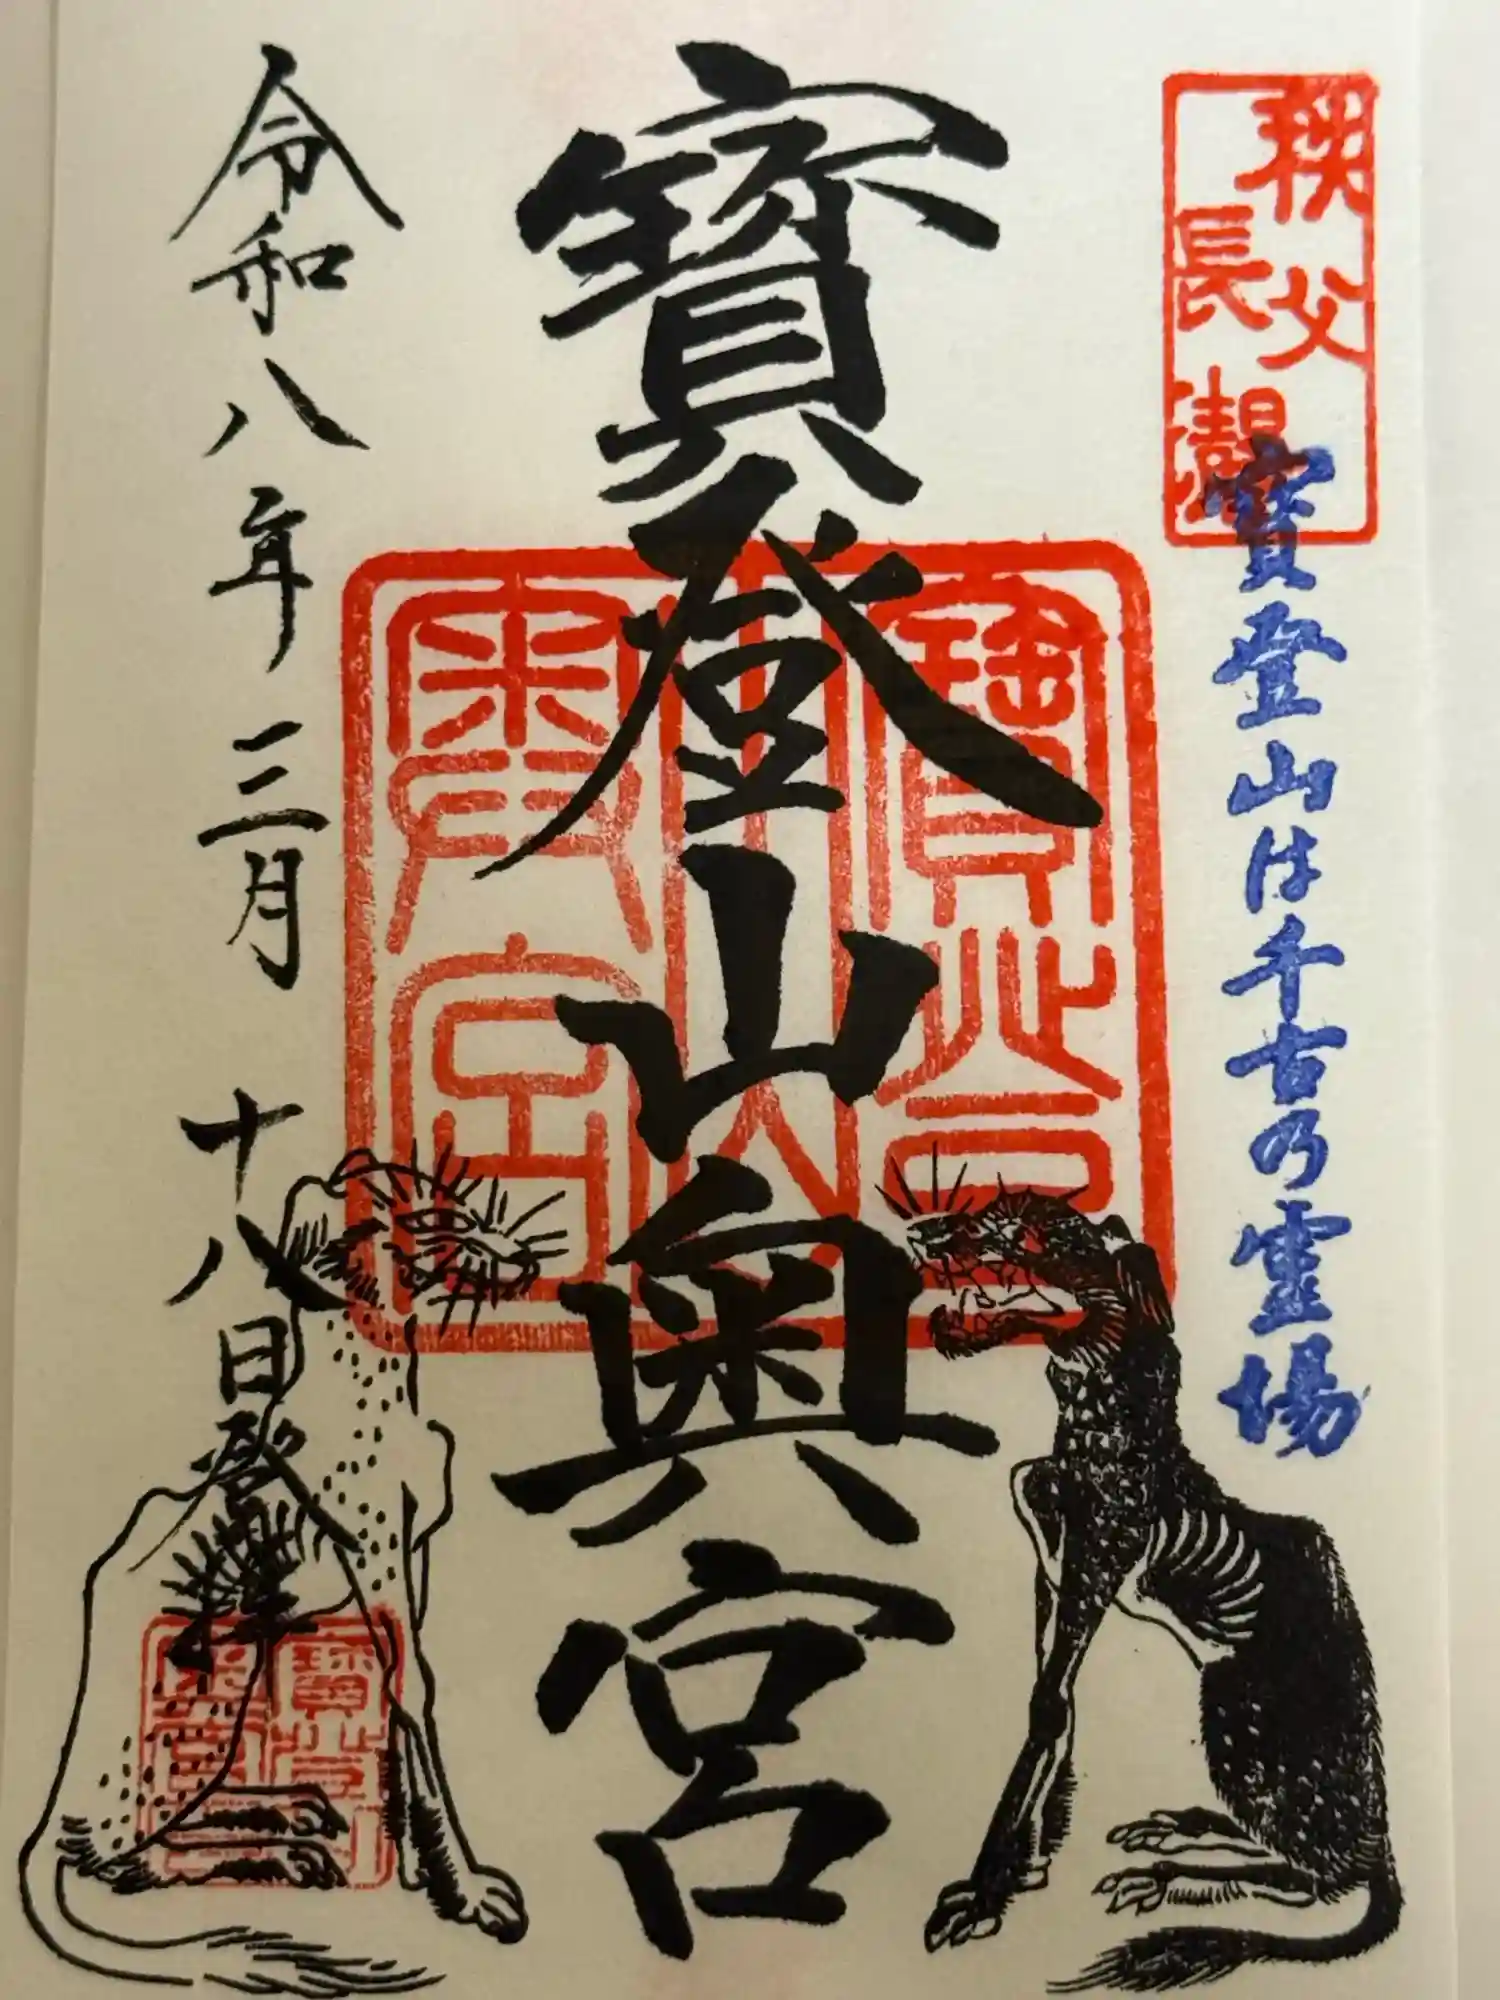 秩父
長瀞
寳登山は千古乃霊場
寳登山奥宮
寳登
山
奥宮
令和八年三月十八日登拝